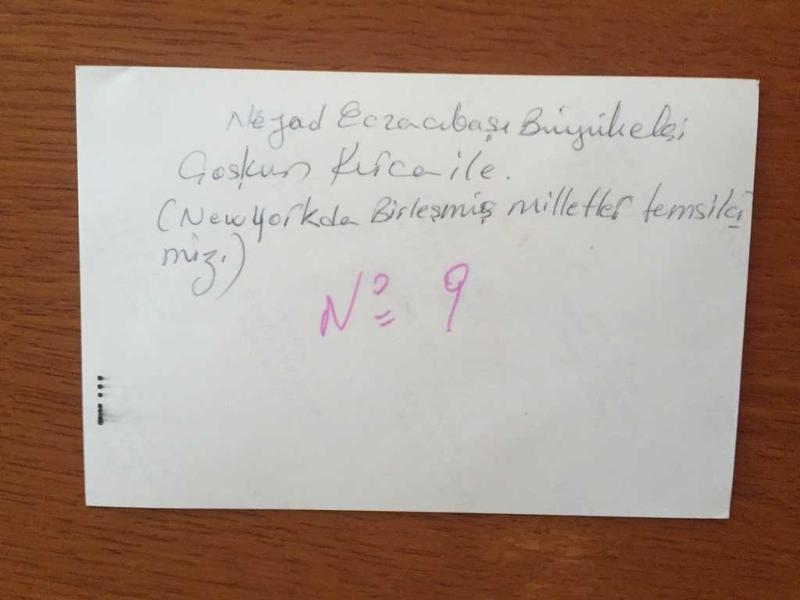 Nejad Eczacıbaşı Büyükelçi
Coşkun Kırca ile.
(New Yorkda Birleşmiş milletler temsilci
miz.)
No 9